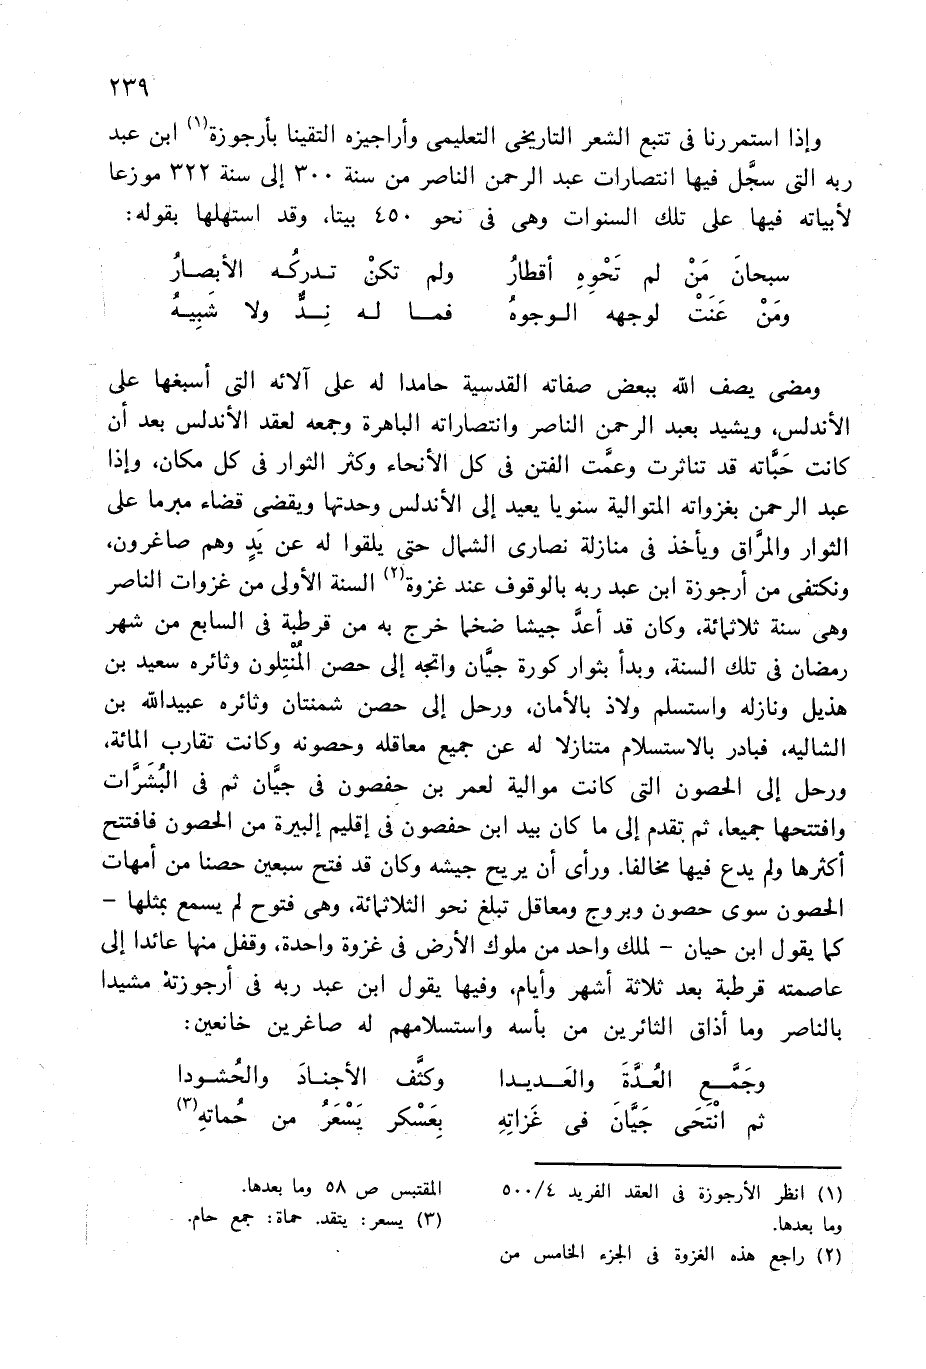 ٢٣٩
وإذا استمررنا فى تتبع الشعر التاريخى التعليمى وأراجيزه التقينا بأرجوزة(١) ابن عبد
ربه التى سجَّل فيها انتصارات عبد الرحمن الناصر من سنة ٣٠٠ إلى سنة ٣٢٢ موزعا
لأبياته فيها على تلك السنوات وهى فى نحو ٤٥٠ بيتا، وقد استهلها بقوله:
سبحانَ مَنْ لم تَحْوِهِ أقطارُ ولم تكنْ تدركُه الأبصارُ
ومَنْ عَنَتْ لوجهه الوجوهُ فما له نِدٌّ ولا شَبِيهُ
ومضى يصف الله ببعض صفاته القدسية حامدا له على آلائه التى أسبغها على
الأندلس، ويشيد بعبد الرحمن الناصر وانتصاراته الباهرة وجمعه لعقد الأندلس بعد أن
كانت حَبَّاته قد تناثرت وعمَّت الفتن فى كل الأنحاء وكثر الثوار فى كل مكان، وإذا
عبد الرحمن بغزواته المتوالية سنويا يعيد إلى الأندلس وحدتها ويقضى قضاء مبرما على
الثوار والمرَّاق ويأخذ فى منازلة نصارى الشمال حتى يلقوا له عن يَدٍ وهم صاغرون،
ونكتفى من أرجوزة ابن عبد ربه بالوقوف عند غزوة(٢) السنة الأولى من غزوات الناصر
وهى سنة ثلاثمائة، وكان قد أعدَّ جيشا ضخما خرج به من قرطبة فى السابع من شهر
رمضان فى تلك السنة، وبدأ بثوار كورة جيَّان واتجه إلى حصن المُنْتِلون وثائره سعيد بن
هذيل ونازله واستسلم ولاذ بالأمان، ورحل إلى حصن شمنتان وثائره عبيدالله بن
الشاليه، فبادر بالاستسلام متنازلا له عن جميع معاقله وحصونه وكانت تقارب المائة،
ورحل إلى الحصون التى كانت موالية لعمر بن حفصون فى جيَّان ثم فى البُشَرَّات
وافتتحها جميعا، ثم تقدم إلى ما كان بيد ابن حفصون فى إقليم إلبيرة من الحصون فافتتح
أكثرها ولم يدع فيها مخالفا. ورأى أن يريح جيشه وكان قد فتح سبعين حصنا من أمهات
الحصون سوى حصون وبروج ومعاقل تبلغ نحو الثلاثمائة، وهى فتوح لم يسمع بمثلها –
كما يقول ابن حيان – لملك واحد من ملوك الأرض فى غزوة واحدة، وقفل منها عائدا إلى
عاصمته قرطبة بعد ثلاثة أشهر وأيام، وفيها يقول ابن عبد ربه فى أرجوزته مشيدا
بالناصر وما أذاق الثائرين من بأسه واستسلامهم له صاغرين خانعين:
وجَمَّعِ العُدَّةَ والعَديدا وكثَّف الأجنادَ والحُشودا
ثم انْتَحَى جَيَّانَ فى غَزَاتِهِ بِعَسْكرٍ يَسْعَرُ من حُماتهِ(٣)
(١) انظر الأرجوزة فى العقد الفريد ٥٠٠/٤
وما بعدها.
(٢) راجع هذه الغزوة فى الجزء الخامس من
المقتبس ص ٥٨ وما بعدها.
(٣) يسعر: يتقد. حماة: جمع حام.